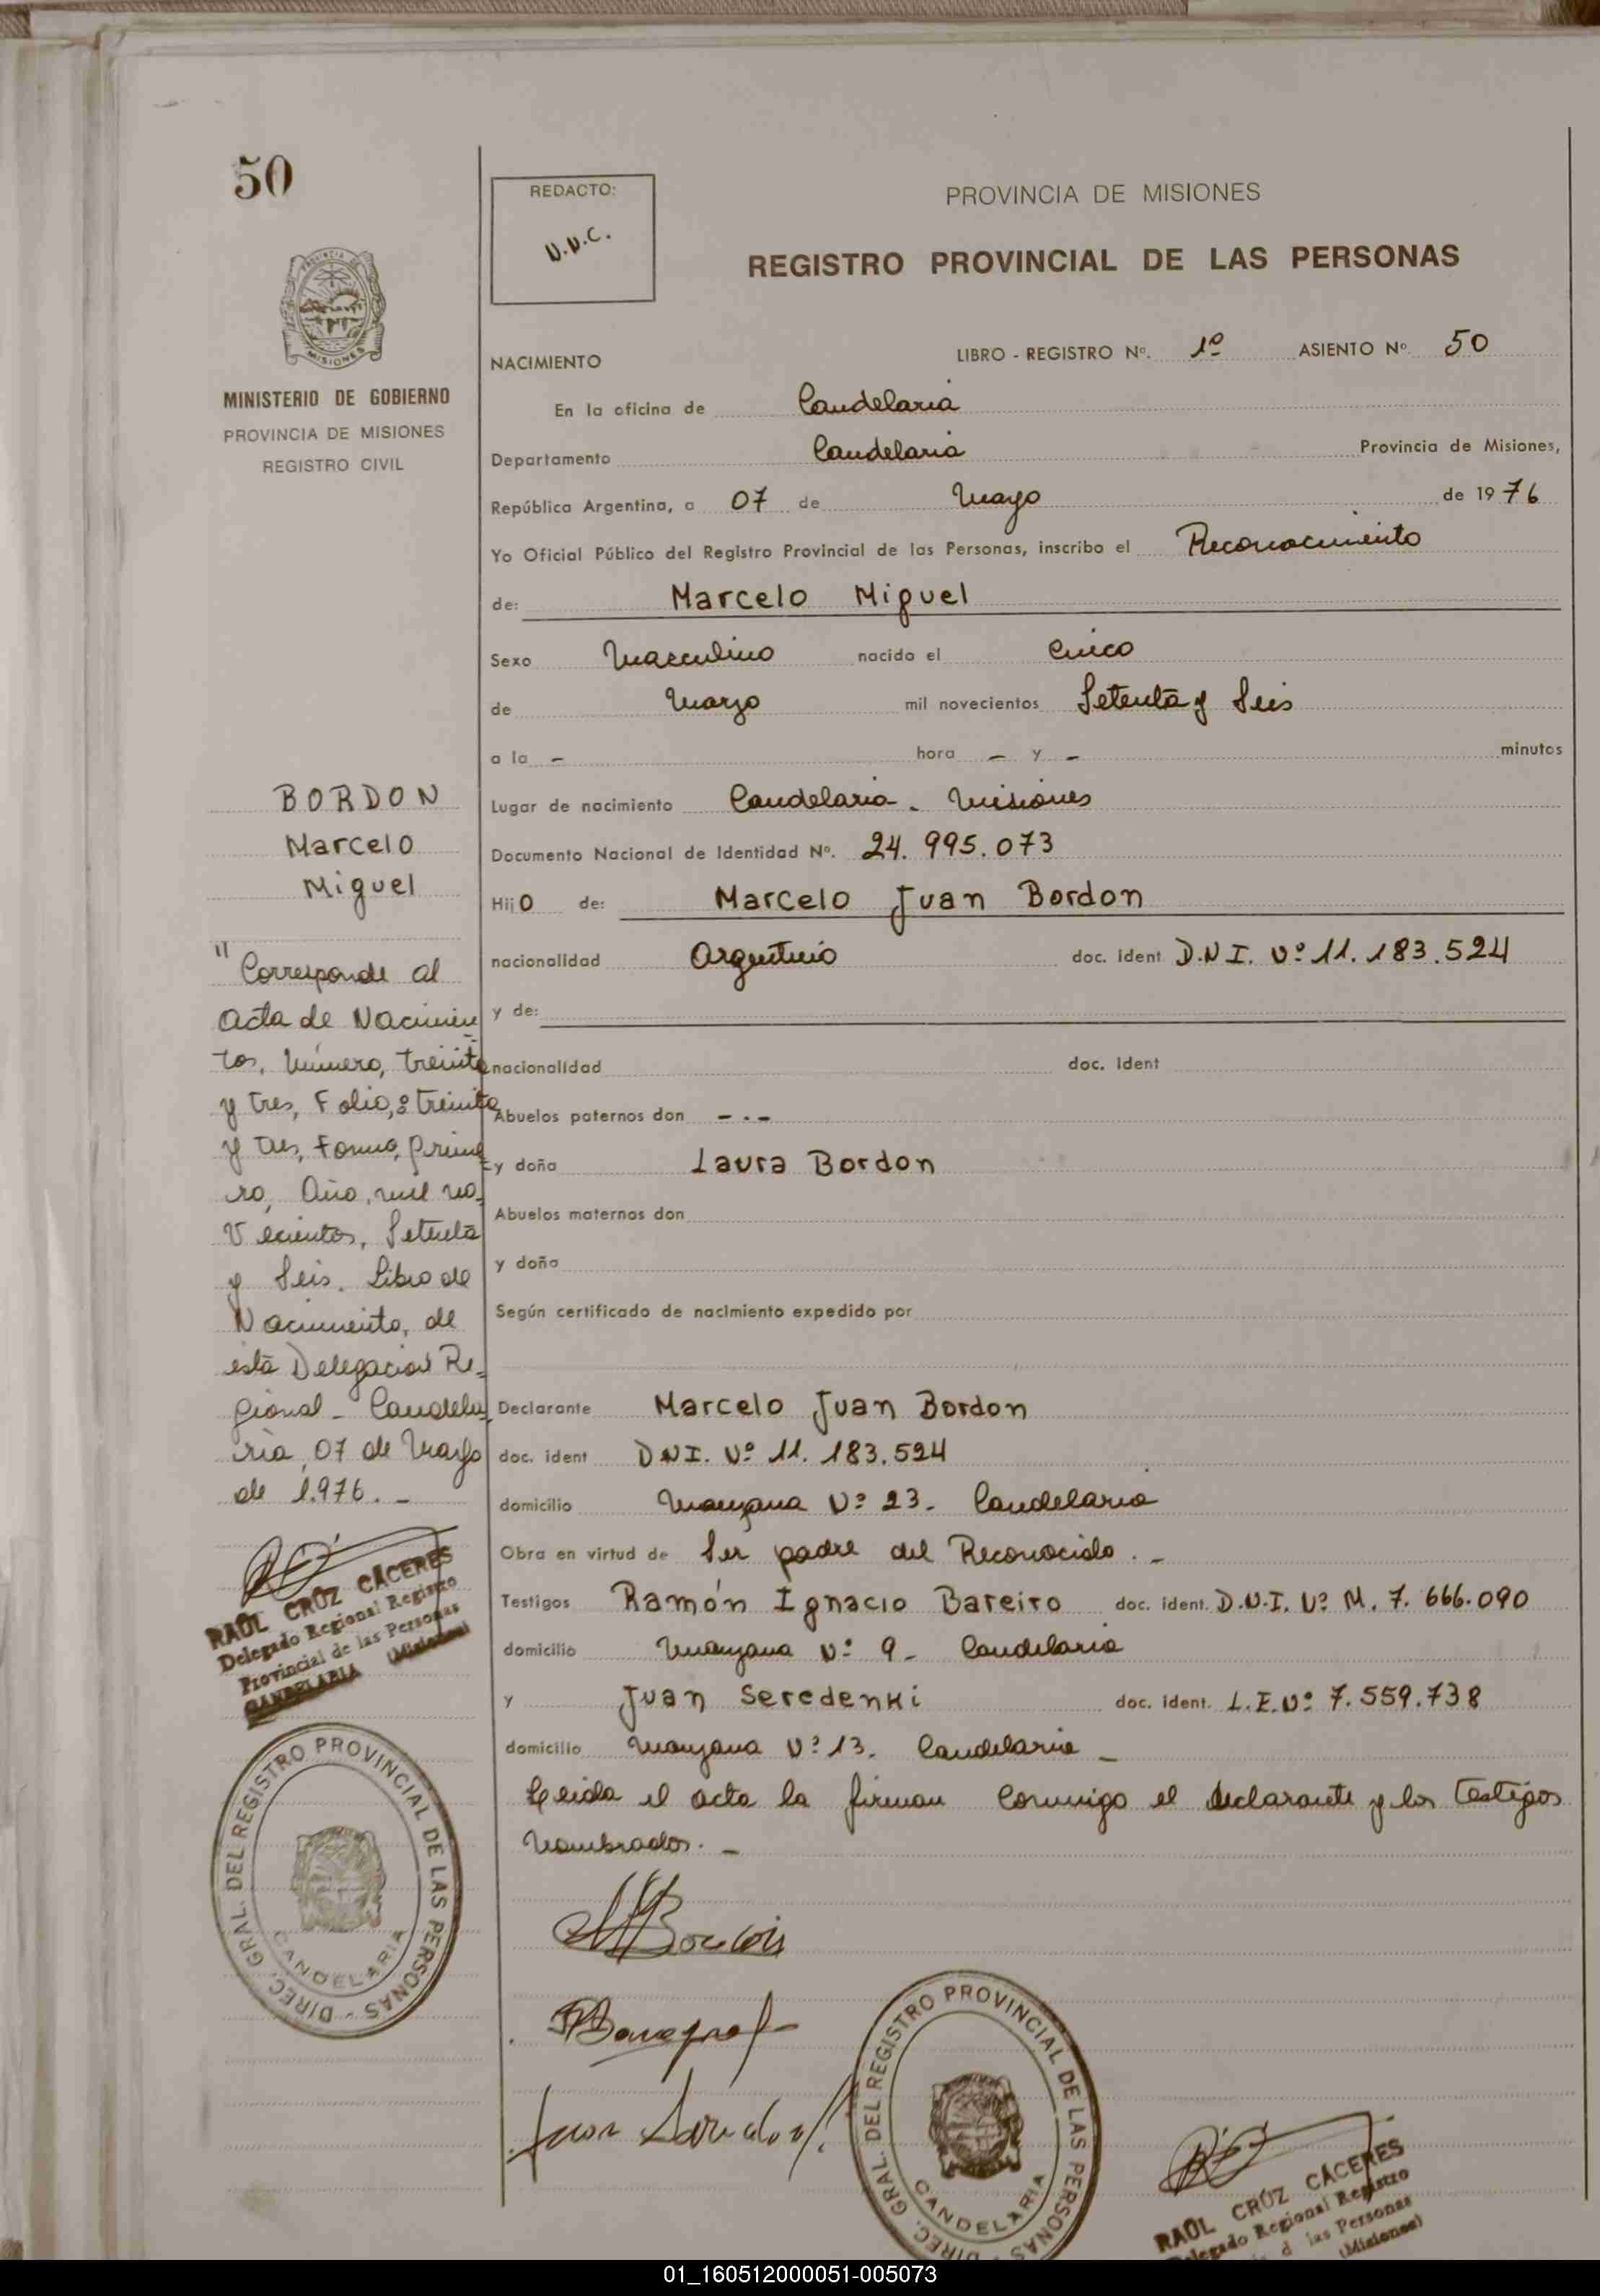 50
PROVINCIA DE MISIONES
MINISTERIO DE GOBIERNO
PROVINCIA DE MISIONES
REGISTRO CIVIL
BORDON
Marcelo
Miguel
"Corresponde al
acta de Nacimien
tos, Número, treinta
y tres, Folio,º treinta
y tres, Tomo, prime
ro, Año, mil no_
vecientos, Setenta
y Seis. Libro de
Nacimiento, de
esta Delegación Re_
gional - Candela
ria, 07 de Mayo
de 1.976. _
RAÚL CRÚZ CÁCERES
Delegado Regional Registro
Provincial de las Personas
CANDELARIA (Misiones)
DIREC. GRAL. DEL REGISTRO PROVINCIAL DE LAS PERSONAS -
CANDELARIA
REDACTO:
PROVINCIA DE MISIONES
REGISTRO PROVINCIAL DE LAS PERSONAS
NACIMIENTO LIBRO - REGISTRO Nº. 1º ASIENTO Nº. 50
En la oficina de Candelaria
Departamento Candelaria Provincia de Misiones,
República Argentina, a 07 de Mayo de 1976
Yo Oficial Público del Registro Provincial de las Personas, inscribo el Reconocimiento
de: Marcelo Miguel
Sexo Masculino nacido el cinco
de Marzo mil novecientos Setenta y Seis
a la - hora - y - minutos
Lugar de nacimiento Candelaria - Misiones
Documento Nacional de Identidad Nº. 24.995.073
Hijo de: Marcelo Juan Bordon
nacionalidad Argentino doc. ident D.N.I. Nº 11.183.524
y de:
nacionalidad doc. ident
Abuelos paternos don -.-
y doña Laura Bordon
Abuelos maternos don
y doña
Según certificado de nacimiento expedido por
Declarante Marcelo Juan Bordon
doc. ident DNI. Nº 11.183.524
domicilio Manzana Nº 23- Candelaria
Obra en virtud de Ser padre del Reconocido._
Testigos Ramón Ignacio Bareiro doc. ident. D.N.I. Nº M. 7.666.090
domicilio Manzana Nº 9- Candelaria
y Juan Seredenki doc. ident. L.E.Nº 7.559.738
domicilio Manzana Nº 13. Candelaria _
Leída el acta la firman conmigo el declarante y los testigos
nombrados. _
DIREC. GRAL. DEL REGISTRO PROVINCIAL DE LAS PERSONAS
CANDELARIA
RAÚL CRÚZ CÁCERES
Delegado Regional Registro
las Personas
(Misiones)
01_160512000051-005073